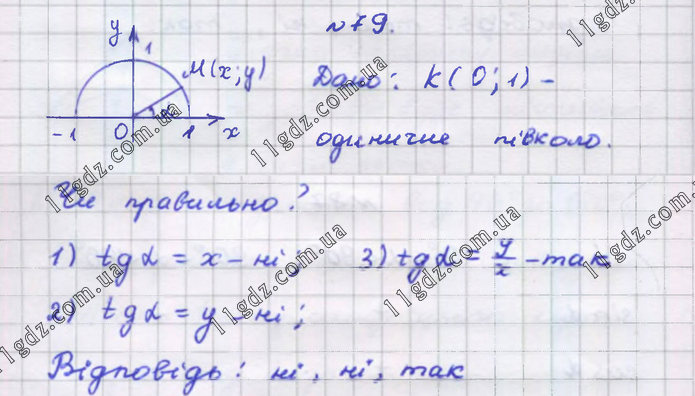 №79.
y
1
M(x;y)
-1 0 1 x
Дано: K(0;1) -
одиничне півколо.
Чи правильно?
1) tgα = x - ні; 3) tgα = y/x - так
2) tgα = y - ні;
Відповідь: ні, ні, так
11gdz.com.ua
11gdz.com.ua
11gdz.com.ua
11gdz.com.ua
11gdz.com.ua
11gdz.com.ua
11gdz.com.ua
11gdz.com.ua